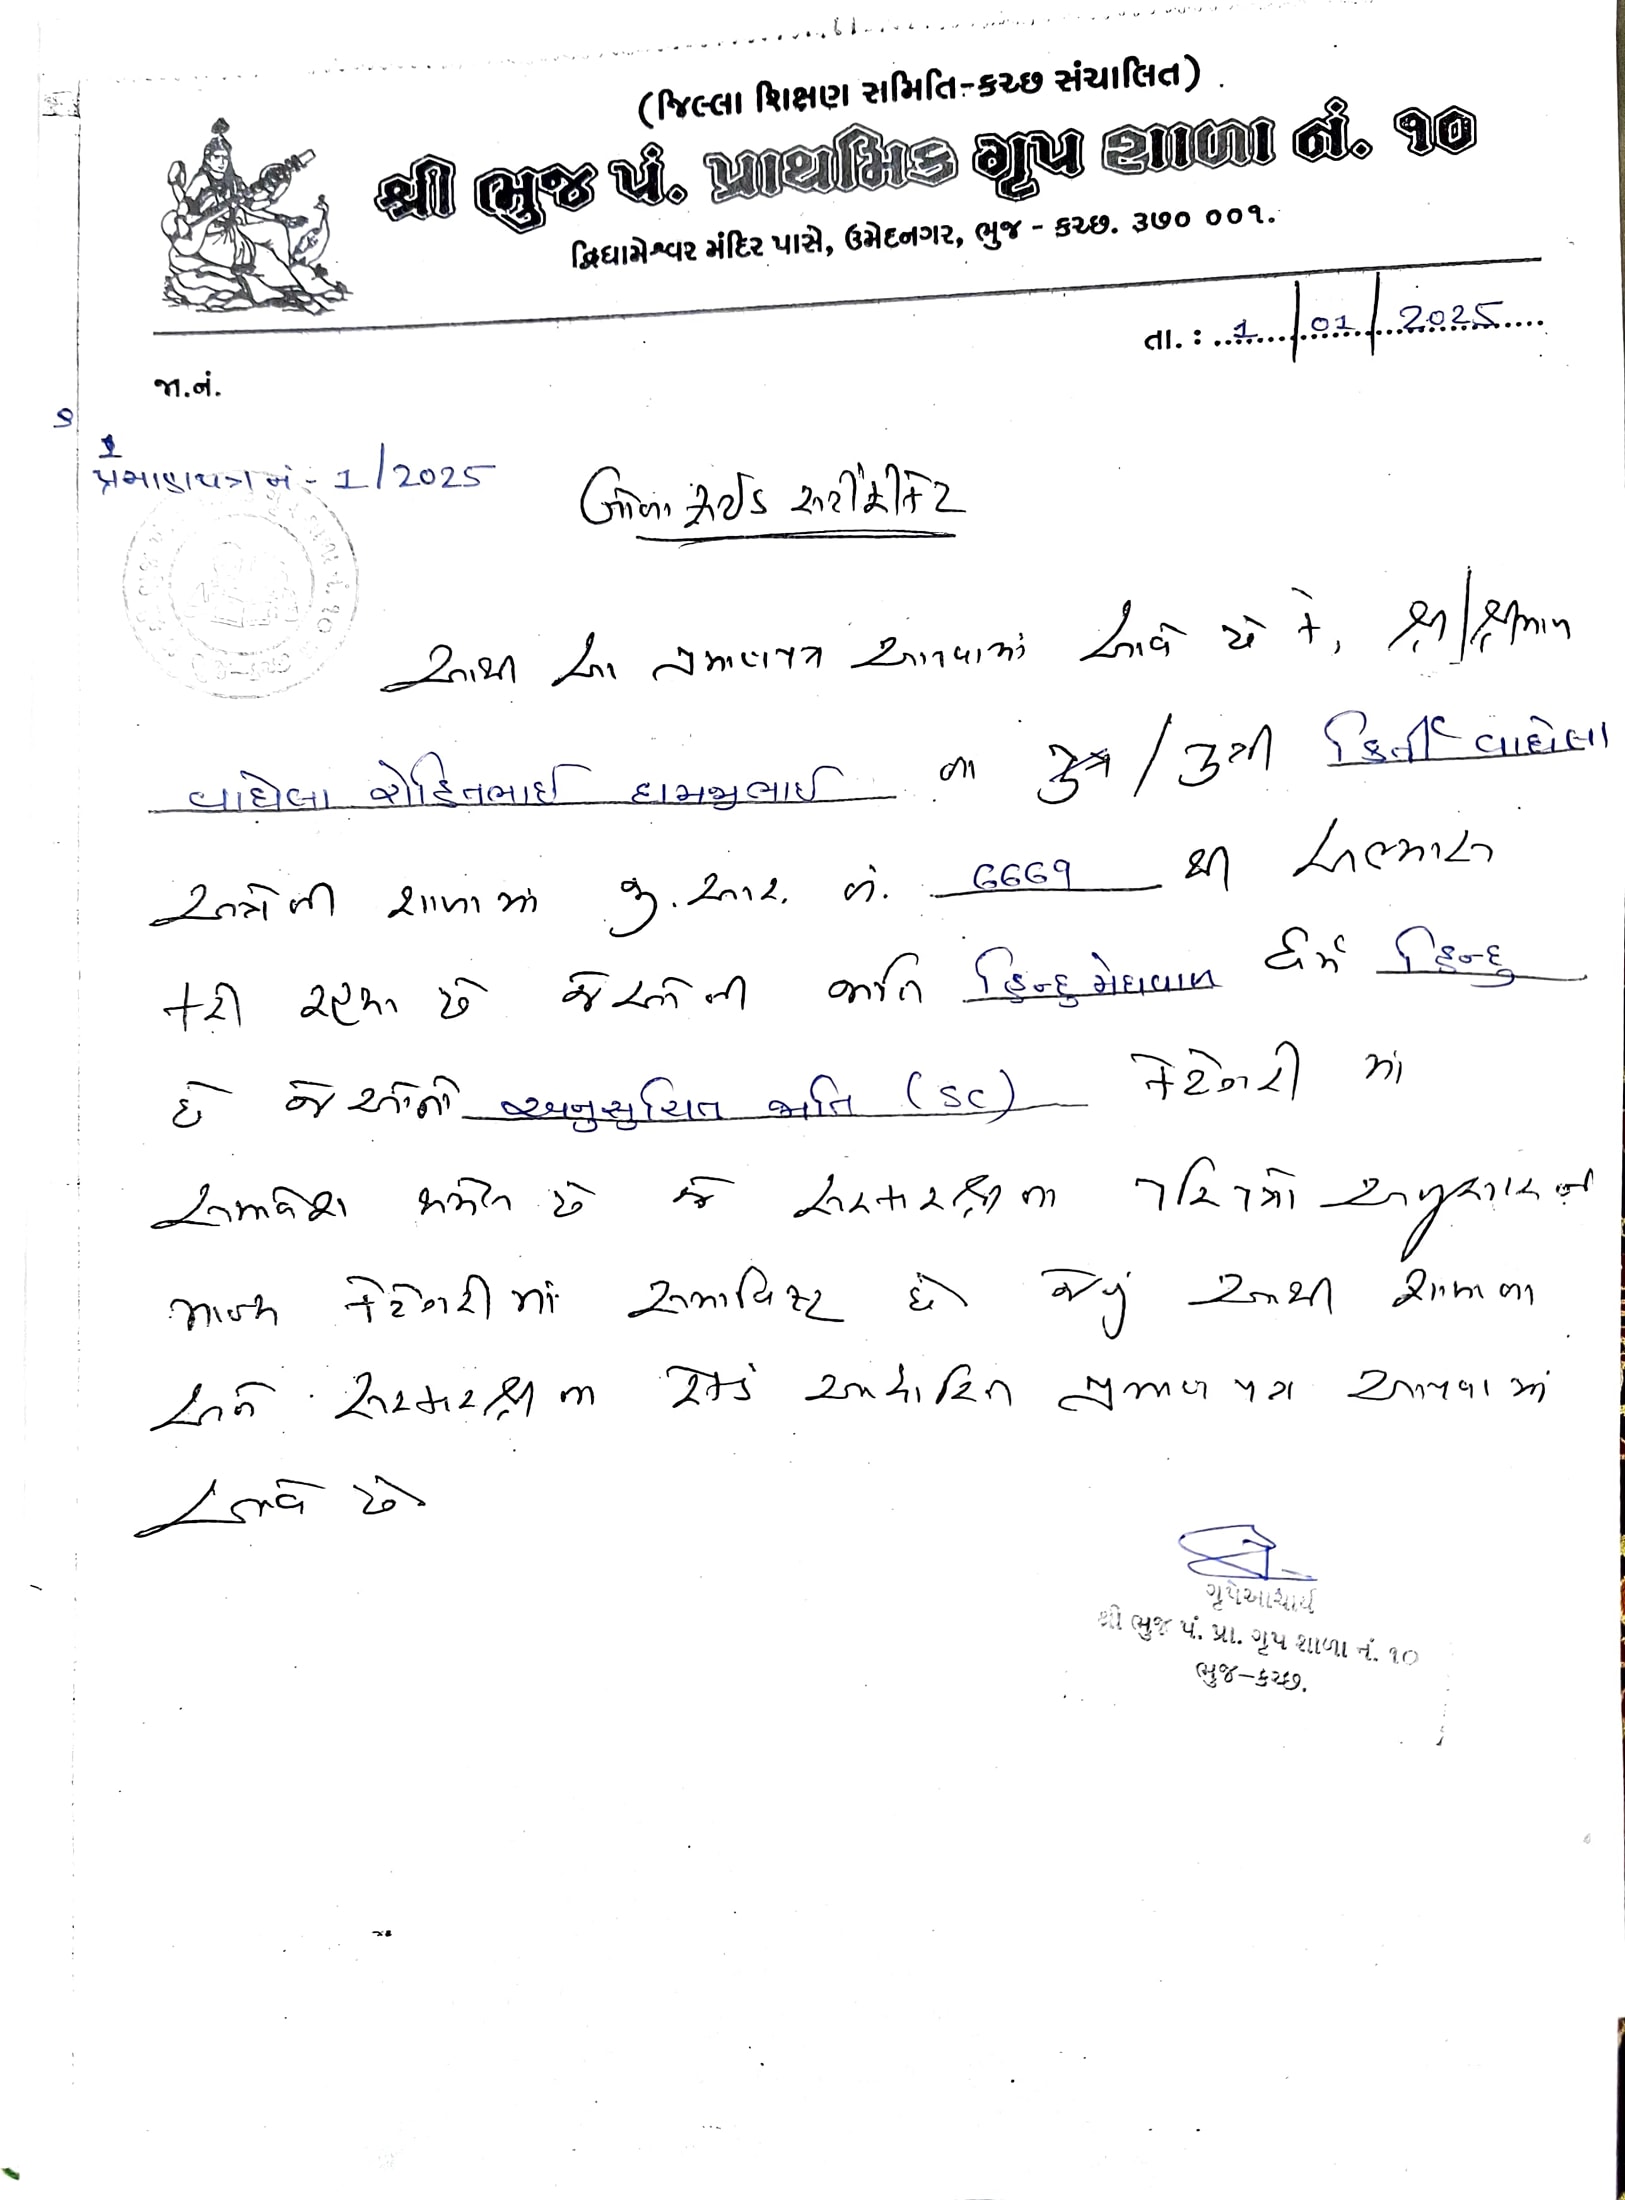 (જિલ્લા શિક્ષણ સમિતિ-કચ્છ સંચાલિત)
શ્રી ભુજ પં. પ્રાથમિક ગૃપ શાળા નં. ૧૦
દ્વિધામેશ્વર મંદિર પાસે, ઉમેદનગર, ભુજ - કચ્છ. ૩૭૦ ૦૦૧.
તા. : 1 / 01 / 2025
જા.નં.
પ્રમાણપત્ર નં - 1/2025
બોનાફાઈડ સર્ટીફીકેટ
આથી આ પ્રમાણપત્ર આપવામાં આવે છે કે, શ્રી/શ્રીમાન
વાઘેલા રોહિતભાઈ દામજીભાઈ ના પુત્ર / પુત્રી કિર્તી વાઘેલા
અત્રેની શાળામાં જી.આર. નં. ૬૬૬૧ થી અભ્યાસ
કરી રહ્યા છે જેઓની જાતિ હિન્દુ મેઘવાળ ધર્મ હિન્દુ
છે જેઓનો અનુસુચિત જાતિ (SC) કેટેગરી માં
સમાવેશ થયેલ છે જે સરકારશ્રીના પરિપત્રો અનુસારની
માન્ય કેટેગરીમાં સમાવિષ્ટ છે જેનું આથી શાળાના
અને સરકારશ્રીના રેકર્ડ આધારિત પ્રમાણપત્ર આપવામાં
આવે છે
ગૃપેઆચાર્ય
શ્રી ભુજ પં. પ્રા. ગૃપ શાળા નં. ૧૦
ભુજ-કચ્છ.